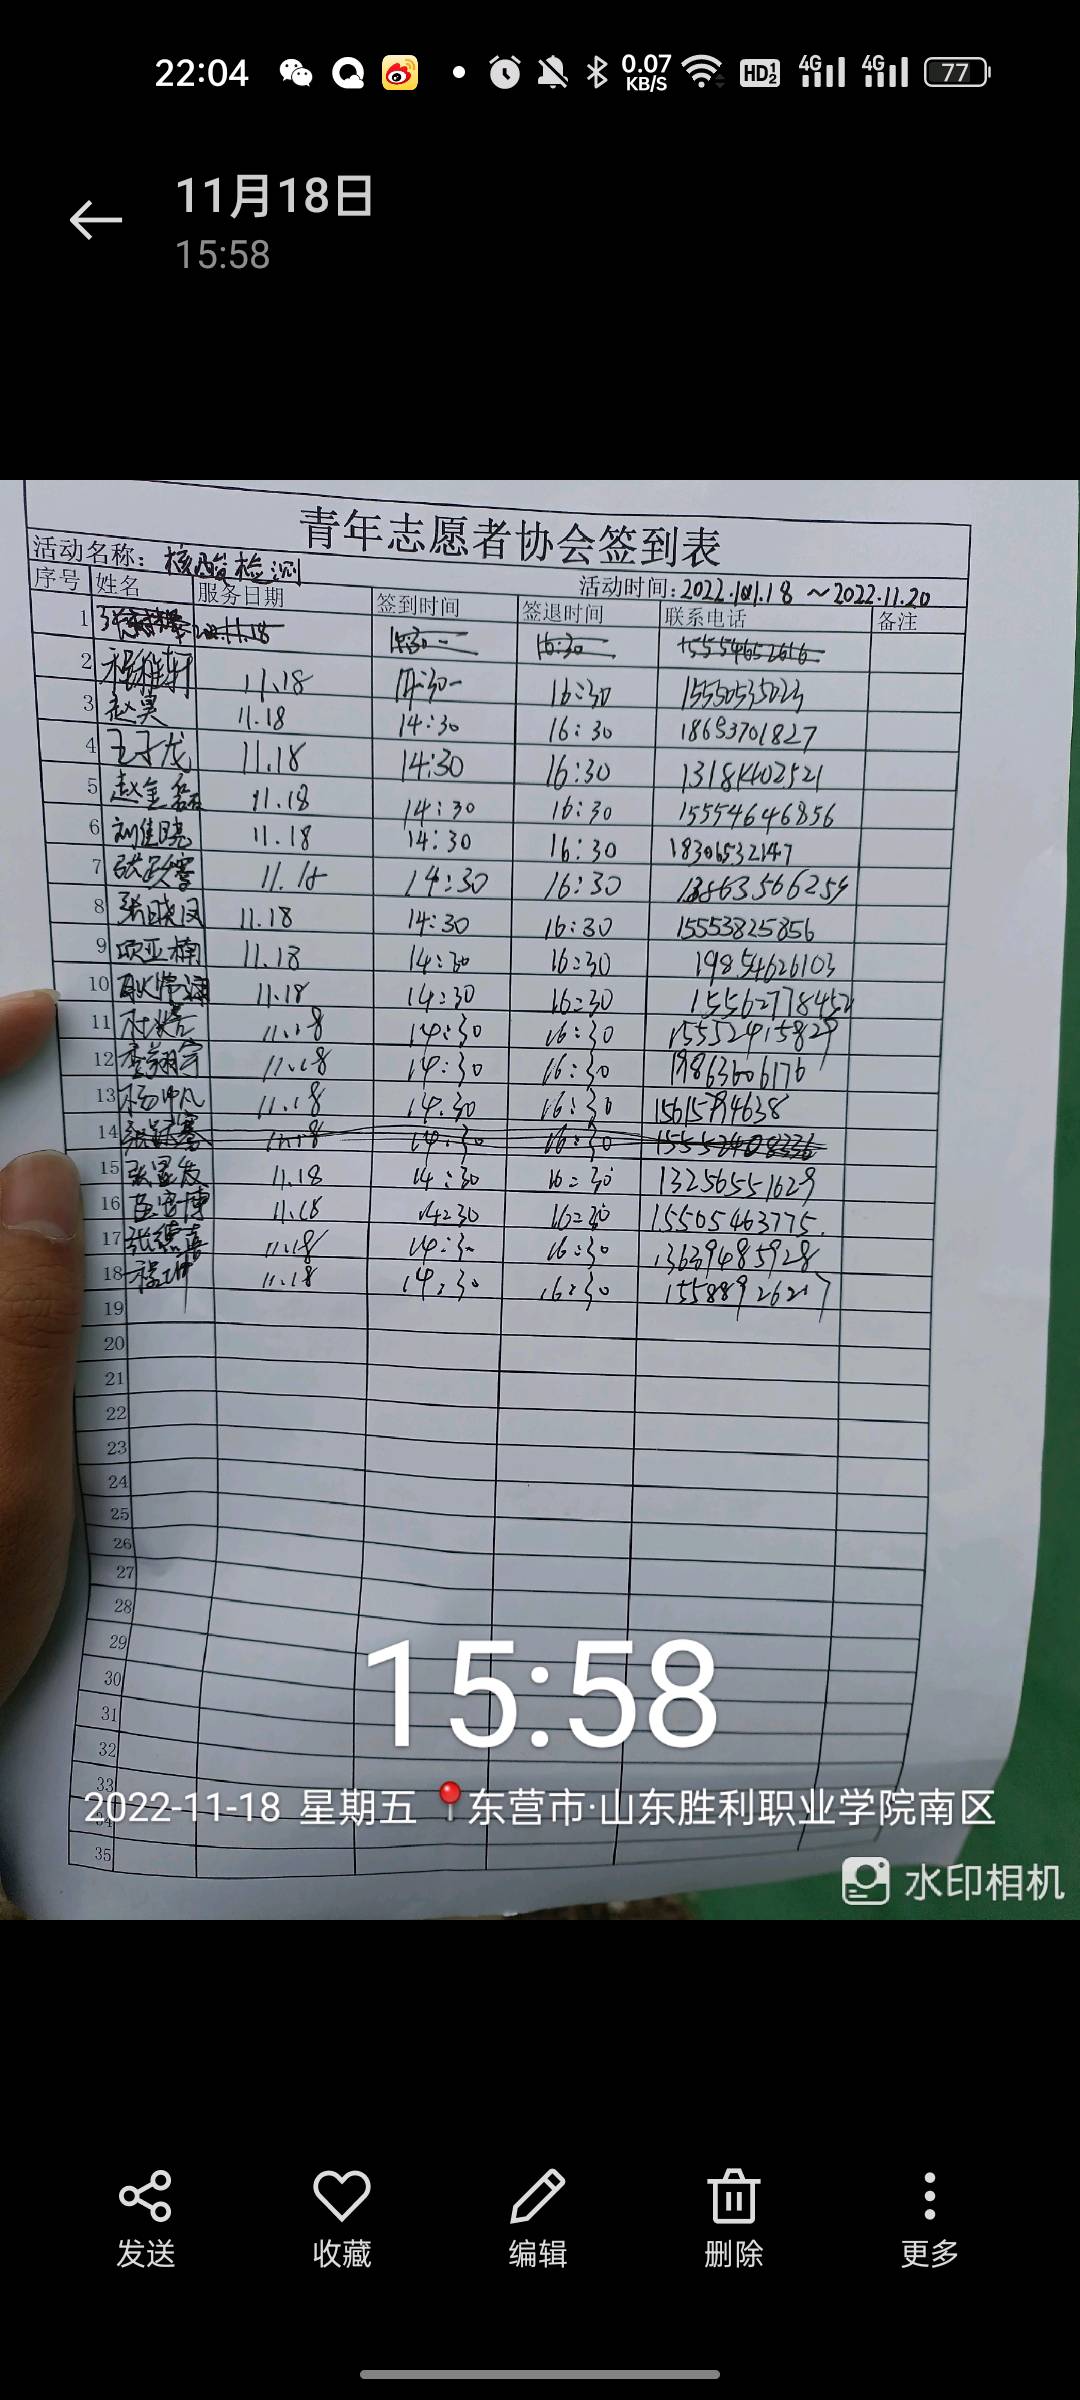 22:04 0.07 KB/S HD 1 2 4G 4G 77
11月18日
15:58
青年志愿者协会签到表
活动名称：核酸检测 活动时间：2022.11.18 ～2022.11.20
序号 姓名 服务日期 签到时间 签退时间 联系电话 备注
1 16:30
2 程雅轩 11.18 14:30 16:30 15550535023
3 赵昊 11.18 14:30 16:30 18653701827
4 王子龙 11.18 14:30 16:30 13181402521
5 赵金磊 11.18 14:30 16:30 15554646856
6 刘佳晓 11.18 14:30 16:30 18306532147
7 11.18 14:30 16:30 13863566259
8 张晓凤 11.18 14:30 16:30 15553825856
9 项亚楠 11.18 14:30 16:30 19854626103
10 11.18 14:30 16:30 15562778452
11 11.18 14:30 16:30 15552415829
12 李翔宇 11.18 14:30 16:30 19863606176
13 11.18 14.30 16:30 15615794638
14 11.18 14:30 16:30
15 张显发 11.18 14:30 16:30 13256551629
16 11.18 14:30 16:30 15505463775.
17 张德喜 11.18 14:30 16:30 13639485928
18 程坤 11.18 14:30 16:30 15588926217
19
20
21
22
23
24
25
26
27
28
29
30
31
32
33
34
35
15:58
2022-11-18 星期五 东营市·山东胜利职业学院南区
水印相机
发送 收藏 编辑 删除 更多